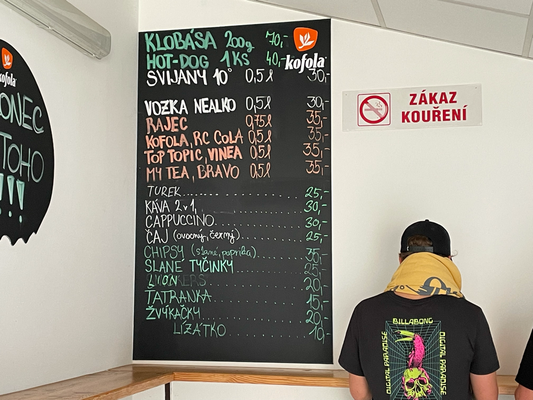 kofola
ONEC
TOHO
!!!
KLOBÁSA 200g 70,-
HOT-DOG 1KS 40,-
kofola
SVIJANY 10° 0,5l 30,-
VOZKA NEALKO 0,5l 30,-
RAJEC 0,75l 35,-
KOFOLA, RC COLA 0,5l 35,-
TOP TOPIC, VINEA 0,5l 35,-
MY TEA, BRAVO 0,5l 35,-
TUREK 25,-
KÁVA 2v1 30,-
CAPPUCCINO 30,-
ČAJ (ovocný, černý) 25,-
CHIPSY (slané, paprika) 35,-
SLANÉ TYČINKY 25,-
LION 20,-
TATRANKA 15,-
ŽVÝKAČKY 20,-
LÍZÁTKO 10,-
ZÁKAZ
KOUŘENÍ
BILLABONG
DIGITAL PARADISE
DIGITAL PARADISE